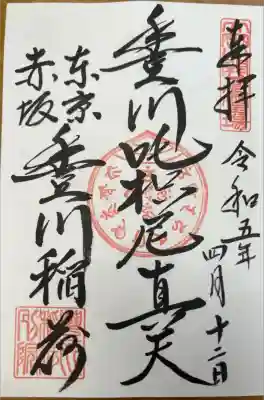 奉拝
令和五年
四月十二日
豊川吒枳尼真天
東京
赤坂
豊川稲荷